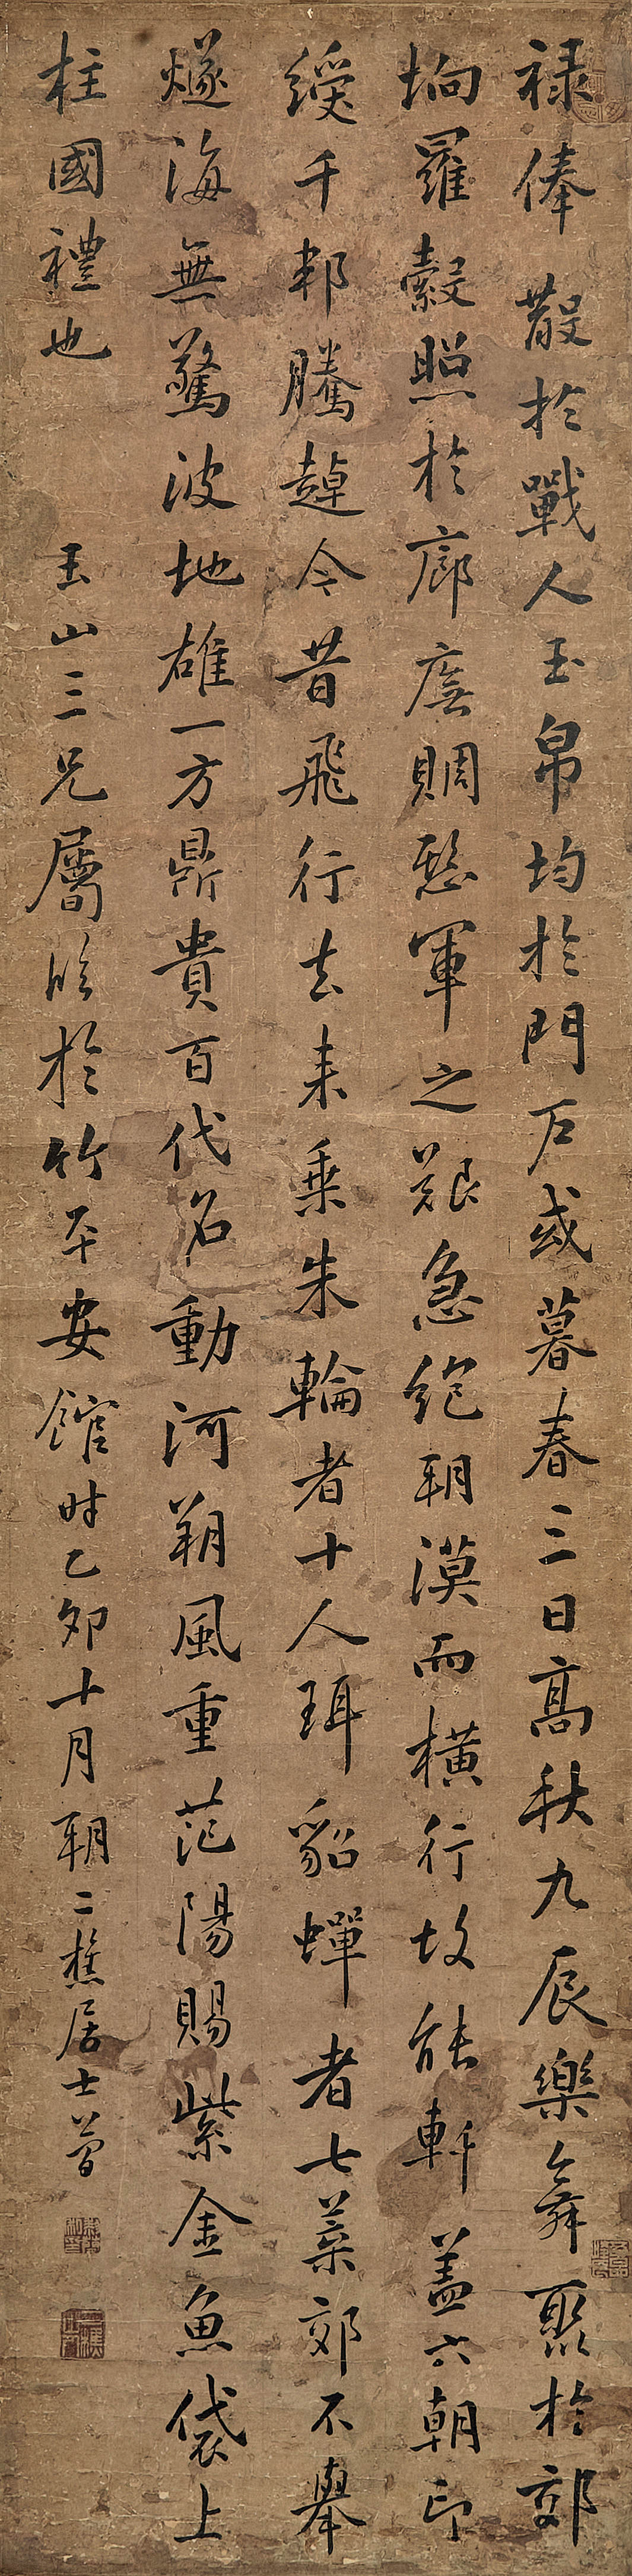 祿俸散於戰人玉帛均於門戶或暮春三日高秋九辰樂舞聚於郊
坰羅縠照於廊廡賙愍軍之艱急絶朔漠而橫行故能軒蓋六朝印
綬千邦騰趠今昔飛行去来乗朱輪者十人珥貂蟬者七葉郊不舉
燧海無驚波地雄一方鼎貴百代名動河朔風重范陽賜紫金魚袋上
柱國禮也
玉山三兄屬臨於竹平安館時乙卯十月朔二樵居士簡